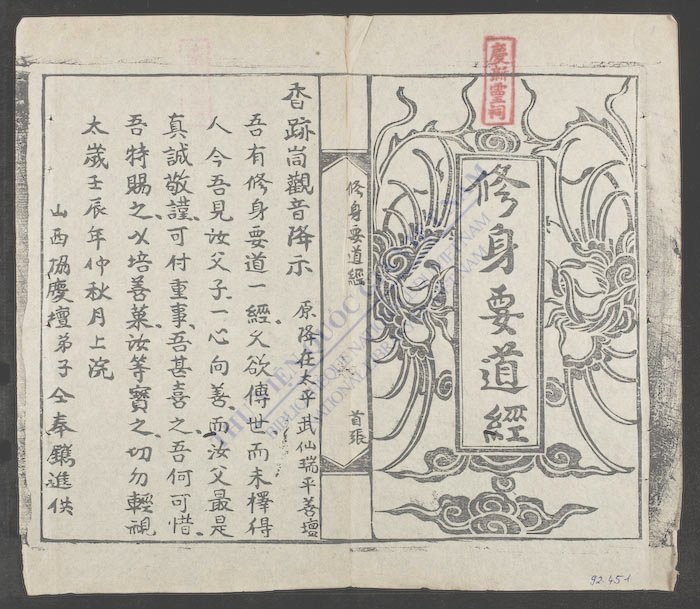 慶新靈祠
修身要道經
修身要道經
首張
香跡峝觀音降示
原降在太平武仙瑞平善壇
吾有修身要道一經久欲傳世而未擇得
人今吾見汝父子一心向善而汝父最是
真誠敬謹可付重事吾甚喜之吾何可惜
吾特賜之以培善菓汝等寶之切勿輕視
太歲壬辰年仲秋月上浣
山西協慶壇弟子仝奉鐫進供
THƯ VIỆN QUỐC GIA VIỆT NAM
BIBLIOTHÈQUE NATIONALE DU VIETNAM
NATIONAL LIBRARY OF VIETNAM
92.451